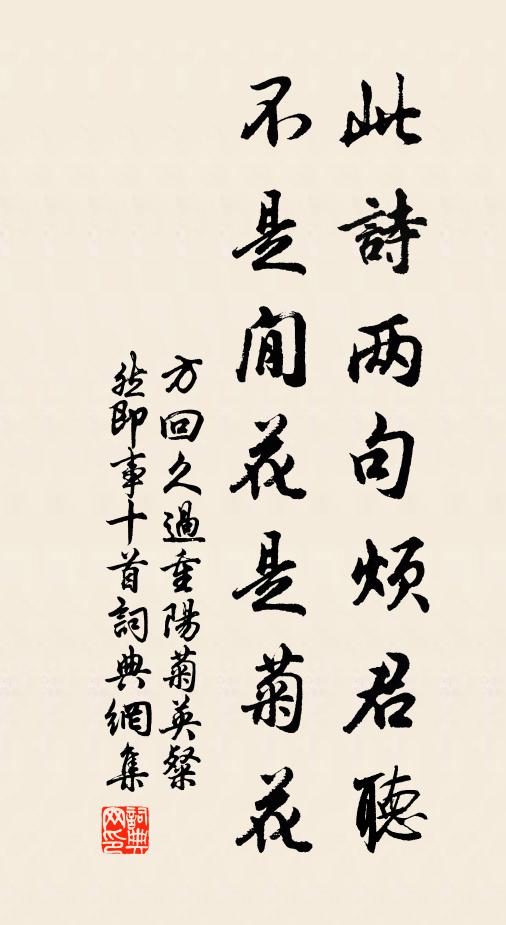 此詩两句煩君聽
不是閒花是菊花
方回久過重陽菊英粲
然即事十首詞典網集
詞典网印